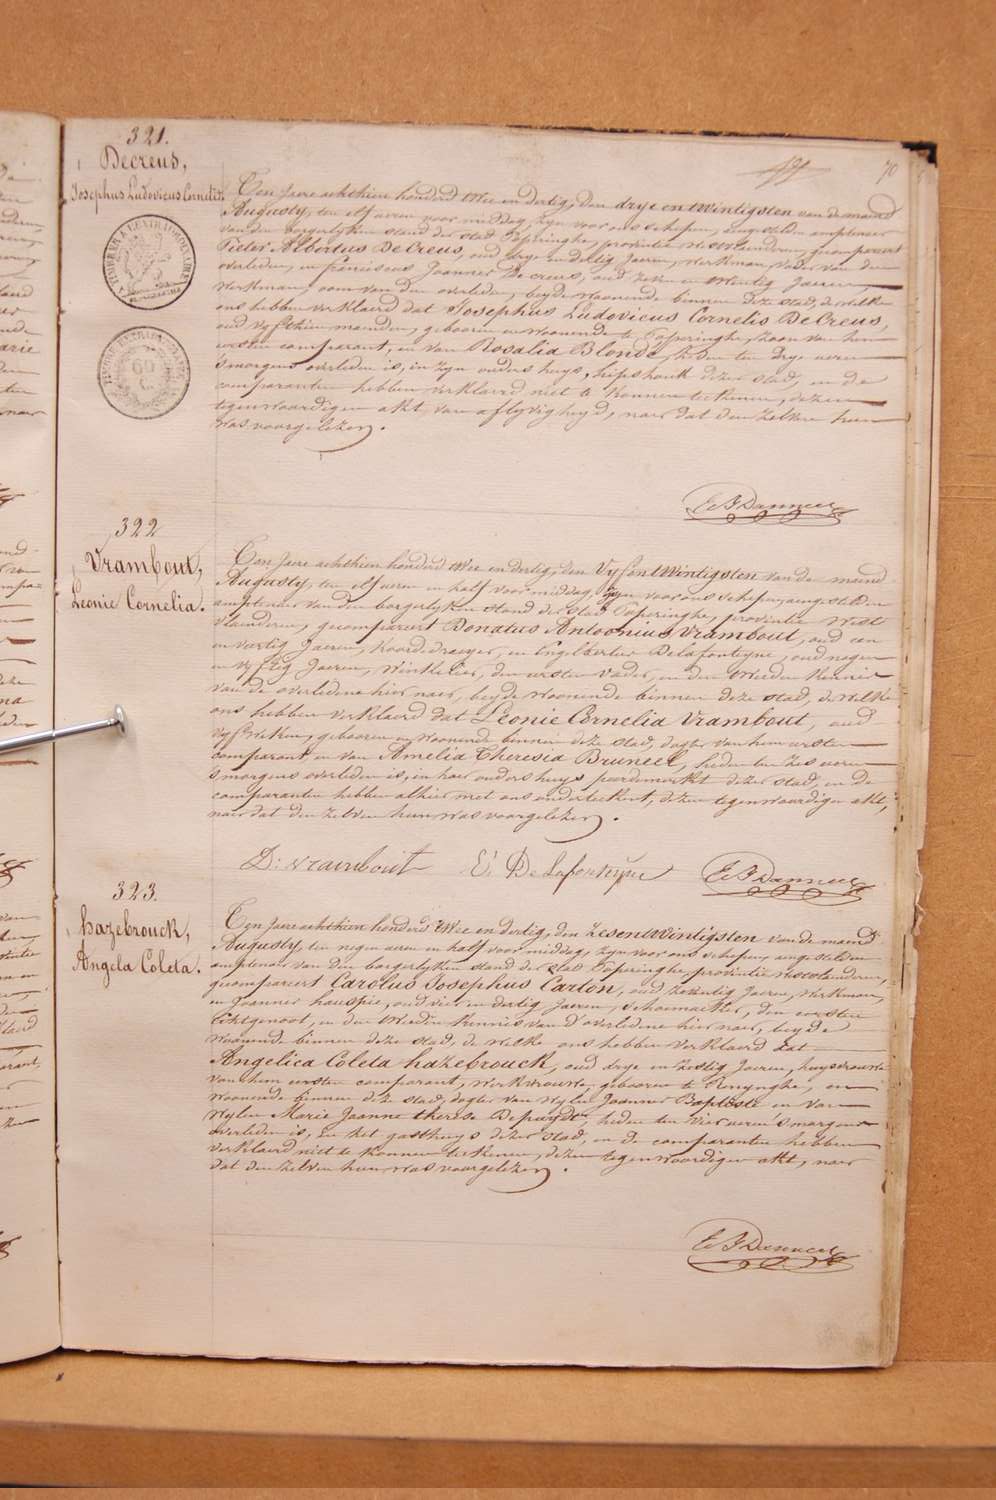 70
321.
Decreus,
Josephus Ludovicus Cornelis.
Ten jaere achthien honderd twee en dertig, den drye en twintigsten van de maend
Augusty, ten elf uren voor middag, zyn voor ons schepen, aengestelden amptenaer
van den borgerlyken stand der stad Poperinghe, provintie Westvlaenderen, gecompareert
Pieter Albertus DeCreus, oud drye en dertig Jaeren, werkman, vader van den
overleden, en franciscus Joannes DeCreus, oud zeven en twintig Jaeren,
werkman, oom van den overleden, beyde woonende binnen deze stad, de welke
ons hebben verklaerd dat Josephus Ludovicus Cornelis DeCreus,
oud vyfthien maenden, geboren en woonende te Poperinghe, zoon van hun
eersten comparant, en van Rosalia Blonde, heden ten drye uren
's morgens overleden is, in zyn ouders huys, hipshouk dezer stad, en de
comparanten hebben verklaerd niet te konnen teekenen, dezen
tegenwoordigen akt van aflyvigheyd, naer dat den zelven hun
was voorgelezen.
322
Vrambout,
Leonie Cornelia.
Ten jaere achthien honderd twee en dertig, den vyf en twintigsten van de maend
Augusty, ten elf uren en half voor middag, zyn voor ons schepen, aengestelden
amptenaer van den borgerlyken stand der stad Poperinghe, provintie West
vlaenderen, gecompareert Donatus Antoonius Vrambout, oud een
en veertig Jaeren, koordedraeyer, en Engelbertus Delafonteyne, oud negen
en vyftig Jaeren, winkelier, den eersten vader, en den tweeden kennis
van de overledene hier naer, beyde woonende binnen deze stad, de welke
ons hebben verklaerd dat Leonie Cornelia Vrambout, oud
vyf weken, geboren en woonende binnen deze stad, dogter van hun eersten
comparant, en van Amelia Theresia Bruneel, heden ten zes uren
's morgens overleden is, in haer ouders huys peerdemarkt dezer stad, en de
comparanten hebben alhier met ons onderteekent, dezen tegenwoordigen akt,
naer dat den zelven hun was voorgelezen.
D: vrambout E: De Lafonteyne
323.
hazebrouck,
Angela Coleta.
Ten jaere achthien honderd twee en dertig, den zes en twintigsten van de maend
Augusty, ten negen uren en half voor middag, zyn voor ons schepen, aengestelden
amptenaer van den borgerlyken stand der stad Poperinghe, provintie westvlaenderen,
gecompareert Carolus Josephus Carton, oud zeventig Jaeren, werkman,
en Joannes hauspie, oud vier en dertig Jaeren, schoenmaker, den eersten
Echtgenoot, en den tweeden kennis van d'overledene hier naer, beyde
woonende binnen deze stad, de welke ons hebben verklaerd dat
Angelica Coleta hazebrouck, oud drye en zestig Jaeren, huysvrouwe
van hun eersten comparant, werkvrouwe, geboren te Renynghe, en
woonende binnen deze stad, dogter van wylen Joannes Baptiste en van
wylen Marie Joanne therese Depuydt, heden ten vier uren 's morgens
overleden is, in het gasthuys dezer stad, en de comparanten hebben
verklaerd niet te konnen teekenen, dezen tegenwoordigen akt, naer
dat den zelven hun was voorgelezen.